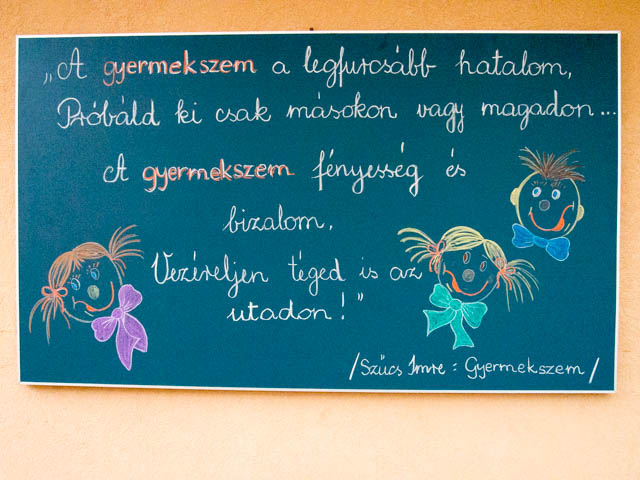 „A gyermekszem a legfurcsább hatalom,
Próbáld ki csak másokon vagy magadon...
A gyermekszem fényesség és
bizalom,
Vezéreljen téged is az
utadon!"
/Szűcs Imre: Gyermekszem/